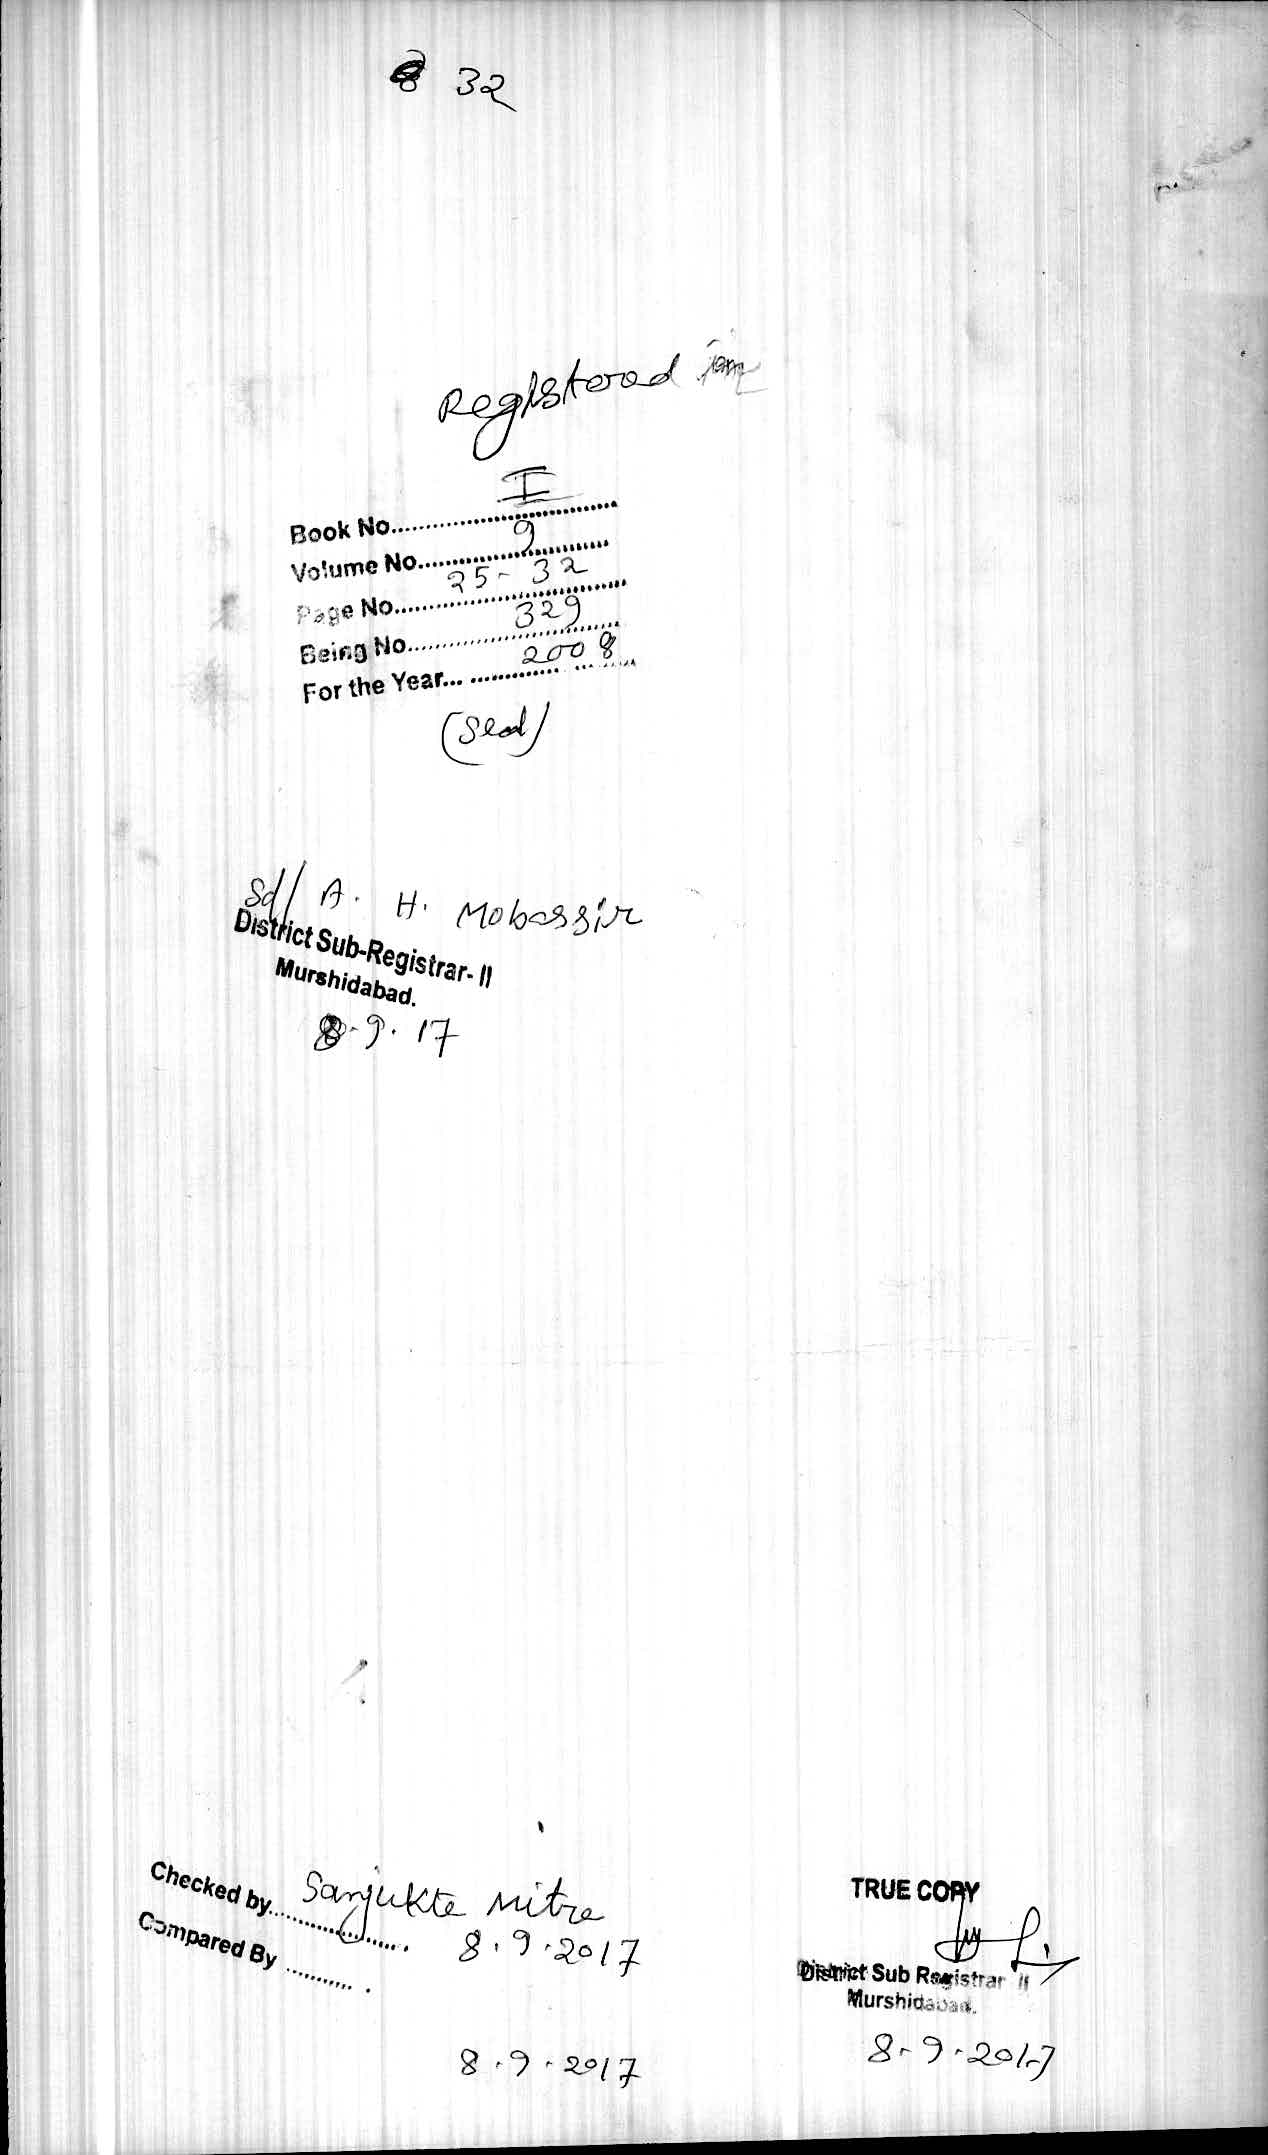 32
Registered in
Book No. I
Volume No. 9
Page No. 25-32
Being No. 329
For the Year... 2008
(Seal)
Sd/ A. H. Mobassir
District Sub-Registrar-II
Murshidabad.
8.9.17
Checked by Sanjukta Mitra
8.9.2017
Compared By
8.9.2017
TRUE COPY
District Sub Registrar II
Murshidabad.
8.9.2017